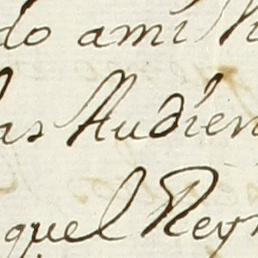 do ami Vi
las Audien
aquel Reyn